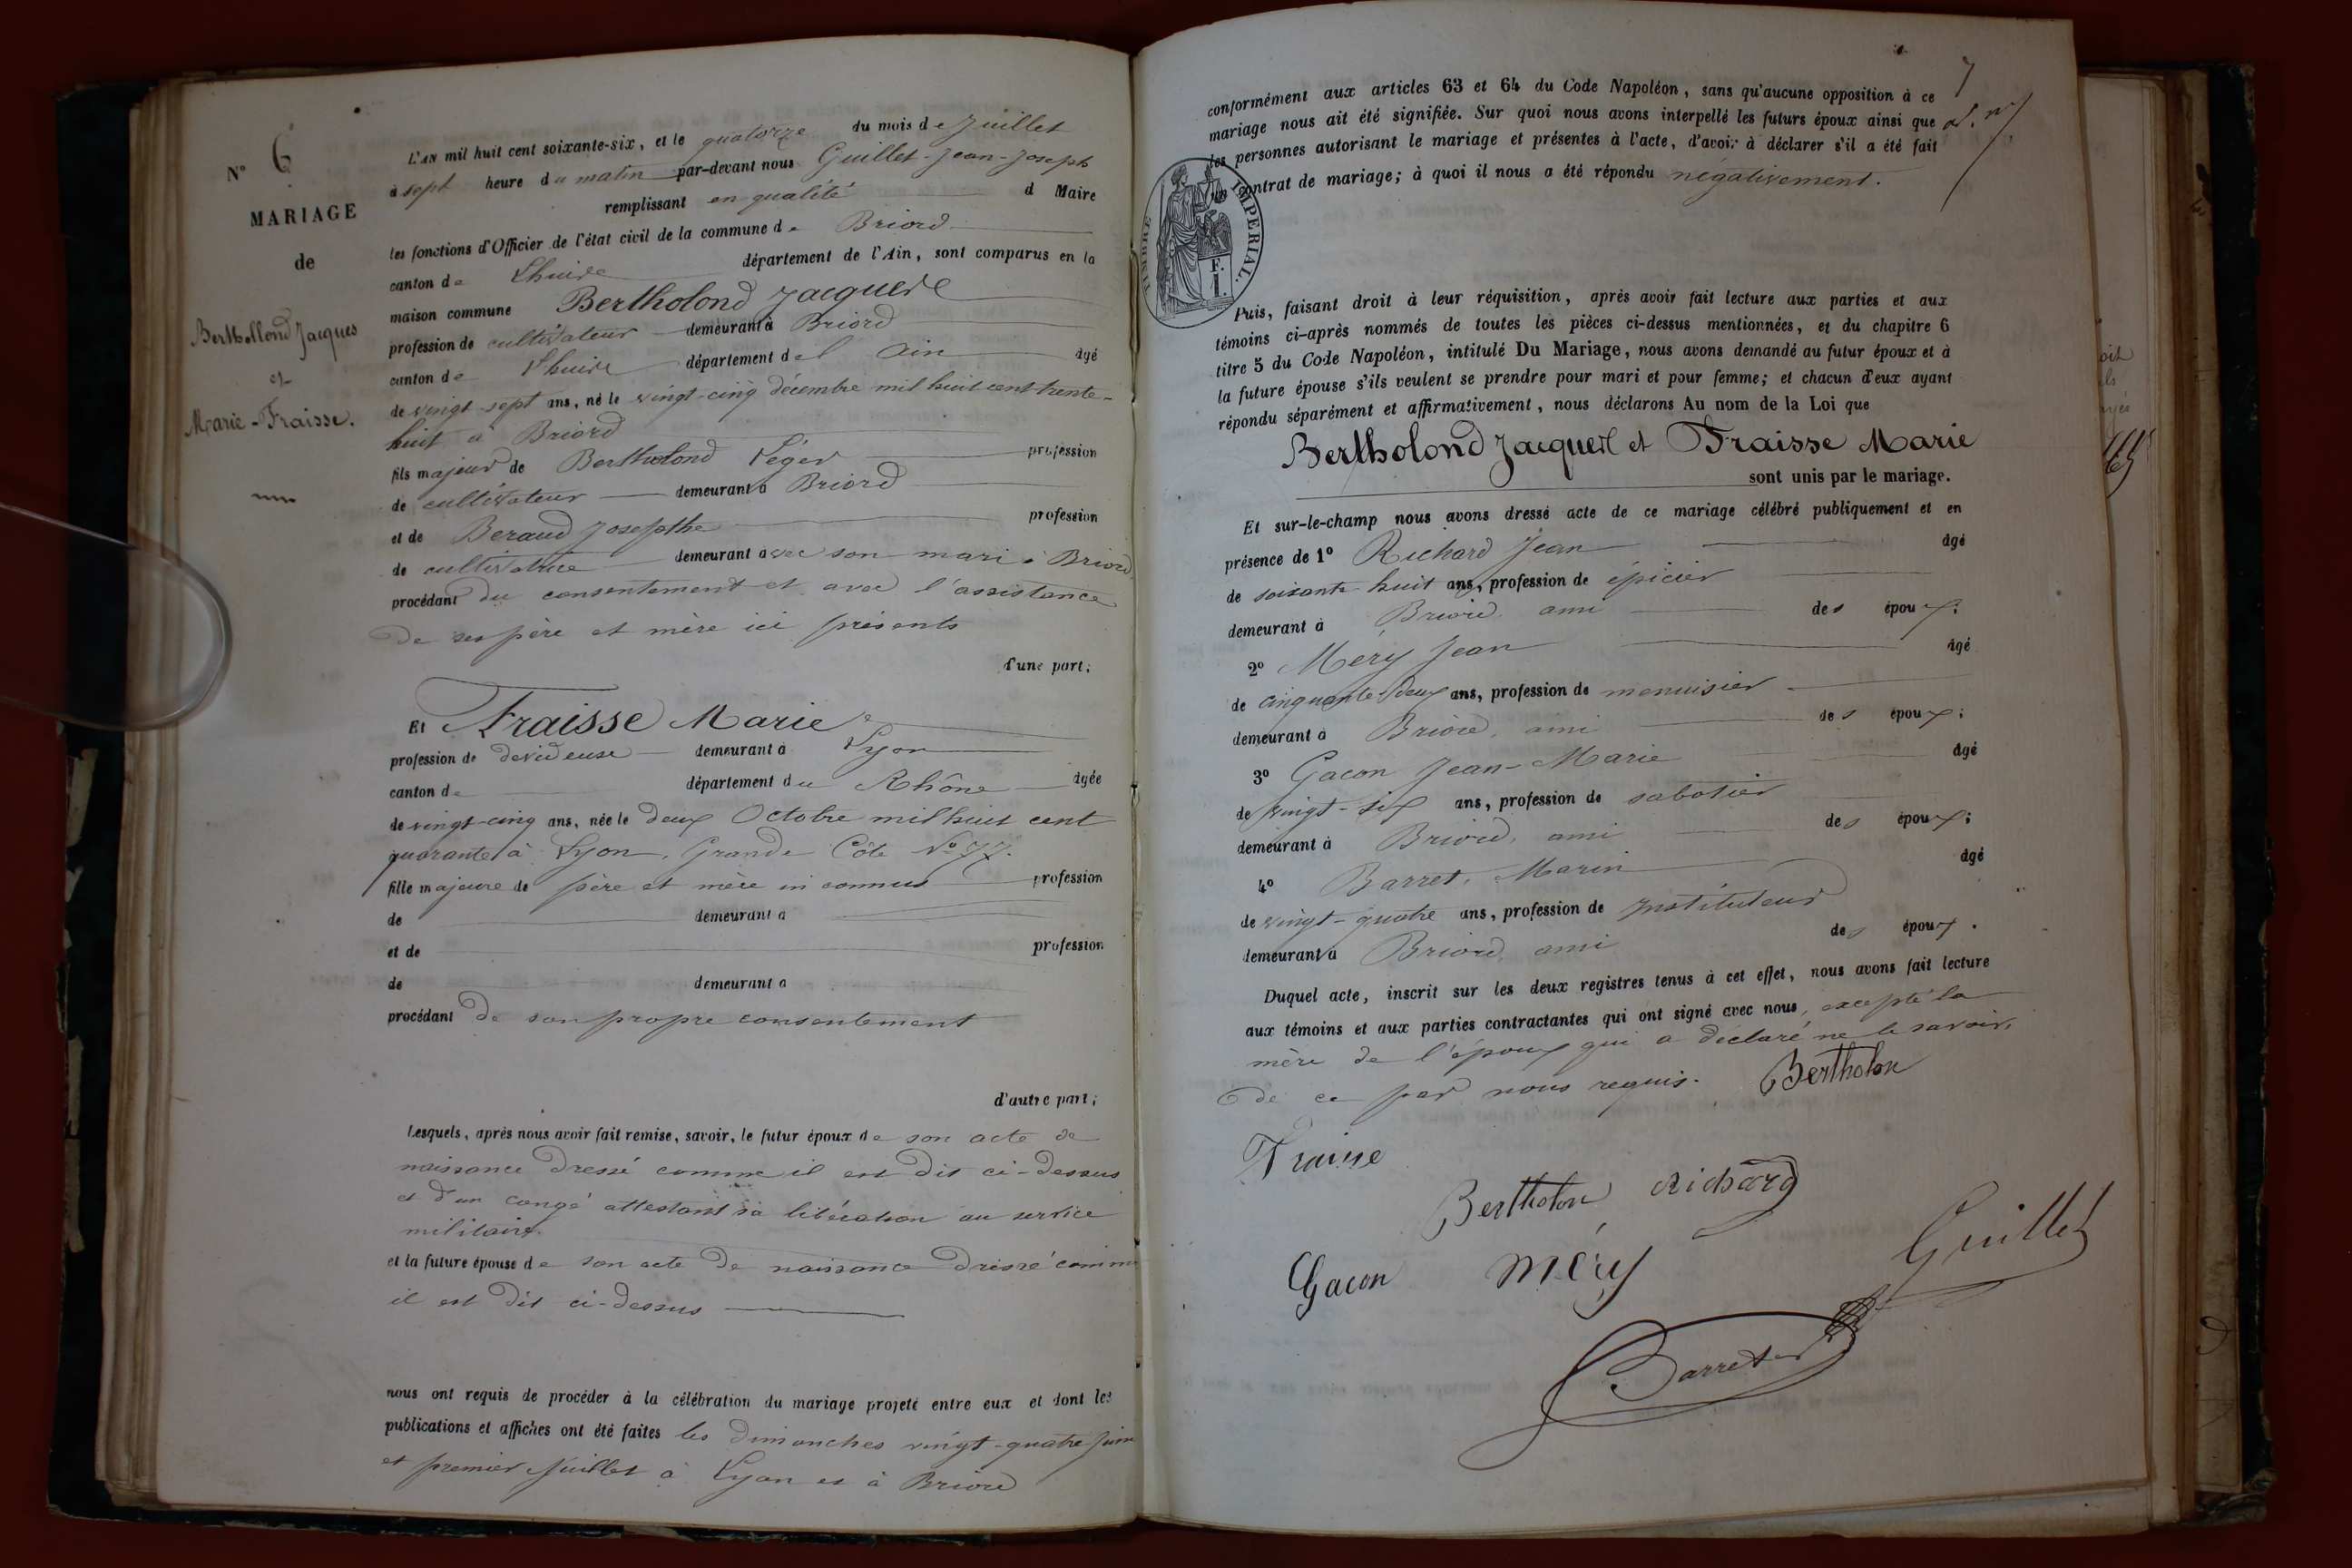 N° 6
MARIAGE
de
Berthollond Jacques
et
Marie-Fraisse.
L'AN mil huit cent soixante-six, et le quatorze du mois de Juillet
à sept heure du matin par-devant nous Guillet-Jean-Joseph
remplissant en qualité d Maire
les fonctions d'Officier de l'état civil de la commune de Briord
canton de Lhuire département de l'Ain, sont comparus en la
maison commune Bertholond Jacques
profession de cultivateur demeurant à Briord
canton de Lhuire département de l Ain âgé
de vingt-sept ans, né le vingt-cinq décembre mil huit cent trente-
huit à Briord
fils majeur de Bertholond Léger profession
de cultivateur demeurant à Briord
et de Beraud Josephthe profession
de cultivatrice demeurant avec son mari à Briord
procédant du consentement et avec l'assistance
de ses père et mère ici présents
d'une part;
Et Fraisse Marie
profession de devideuse demeurant à Lyon
canton de département du Rhône âgée
de vingt-cinq ans, née le deux Octobre mil huit cent
quarante à Lyon, Grande Côte N° 77.
fille majeure de père et mère inconnus profession
de demeurant à
et de profession
de demeurant à
procédant de son propre consentement
d'autre part;
Lesquels, après nous avoir fait remise, savoir, le futur époux de son acte de
naissance dressé comme il est dit ci-dessus
et d'un congé attestant sa libération au service
militaire.
et la future épouse de son acte de naissance dressé comme
il est dit ci-dessus
nous ont requis de procéder à la célébration du mariage projeté entre eux et dont les
publications et affiches ont été faites les dimanches vingt-quatre Juin
et premier Juillet à Lyon et à Briord
7
conformément aux articles 63 et 64 du Code Napoléon, sans qu'aucune opposition à ce
mariage nous ait été signifiée. Sur quoi nous avons interpellé les futurs époux ainsi que
les personnes autorisant le mariage et présentes à l'acte, d'avoir à déclarer s'il a été fait
un contrat de mariage; à quoi il nous a été répondu négativement.
TIMBRE IMPERIAL.
Puis, faisant droit à leur réquisition, après avoir fait lecture aux parties et aux
témoins ci-après nommés de toutes les pièces ci-dessus mentionnées, et du chapitre 6
titre 5 du Code Napoléon, intitulé Du Mariage, nous avons demandé au futur époux et à
la future épouse s'ils veulent se prendre pour mari et pour femme; et chacun d'eux ayant
répondu séparément et affirmativement, nous déclarons Au nom de la Loi que
Bertholond Jacques et Fraisse Marie
sont unis par le mariage.
Et sur-le-champ nous avons dressé acte de ce mariage célébré publiquement et en
présence de 1° Richard Jean âgé
de soixante-huit ans, profession de épicier
demeurant à Briord, ami des époux;
2° Méry Jean âgé
de cinquante-deux ans, profession de menuisier
demeurant à Briord, ami des époux;
3° Gacon Jean-Marie âgé
de vingt-six ans, profession de sabotier
demeurant à Briord, ami des époux;
4° Barret, Marin âgé
de vingt-quatre ans, profession de Instituteur
demeurant à Briord, ami des époux.
Duquel acte, inscrit sur les deux registres tenus à cet effet, nous avons fait lecture
aux témoins et aux parties contractantes qui ont signé avec nous, excepté la
mère de l'époux qui a déclaré ne le savoir,
de ce par nous requis. Bertholon
Fraisse
Bertholon Richard
Gacon Méry Guillet
Barret